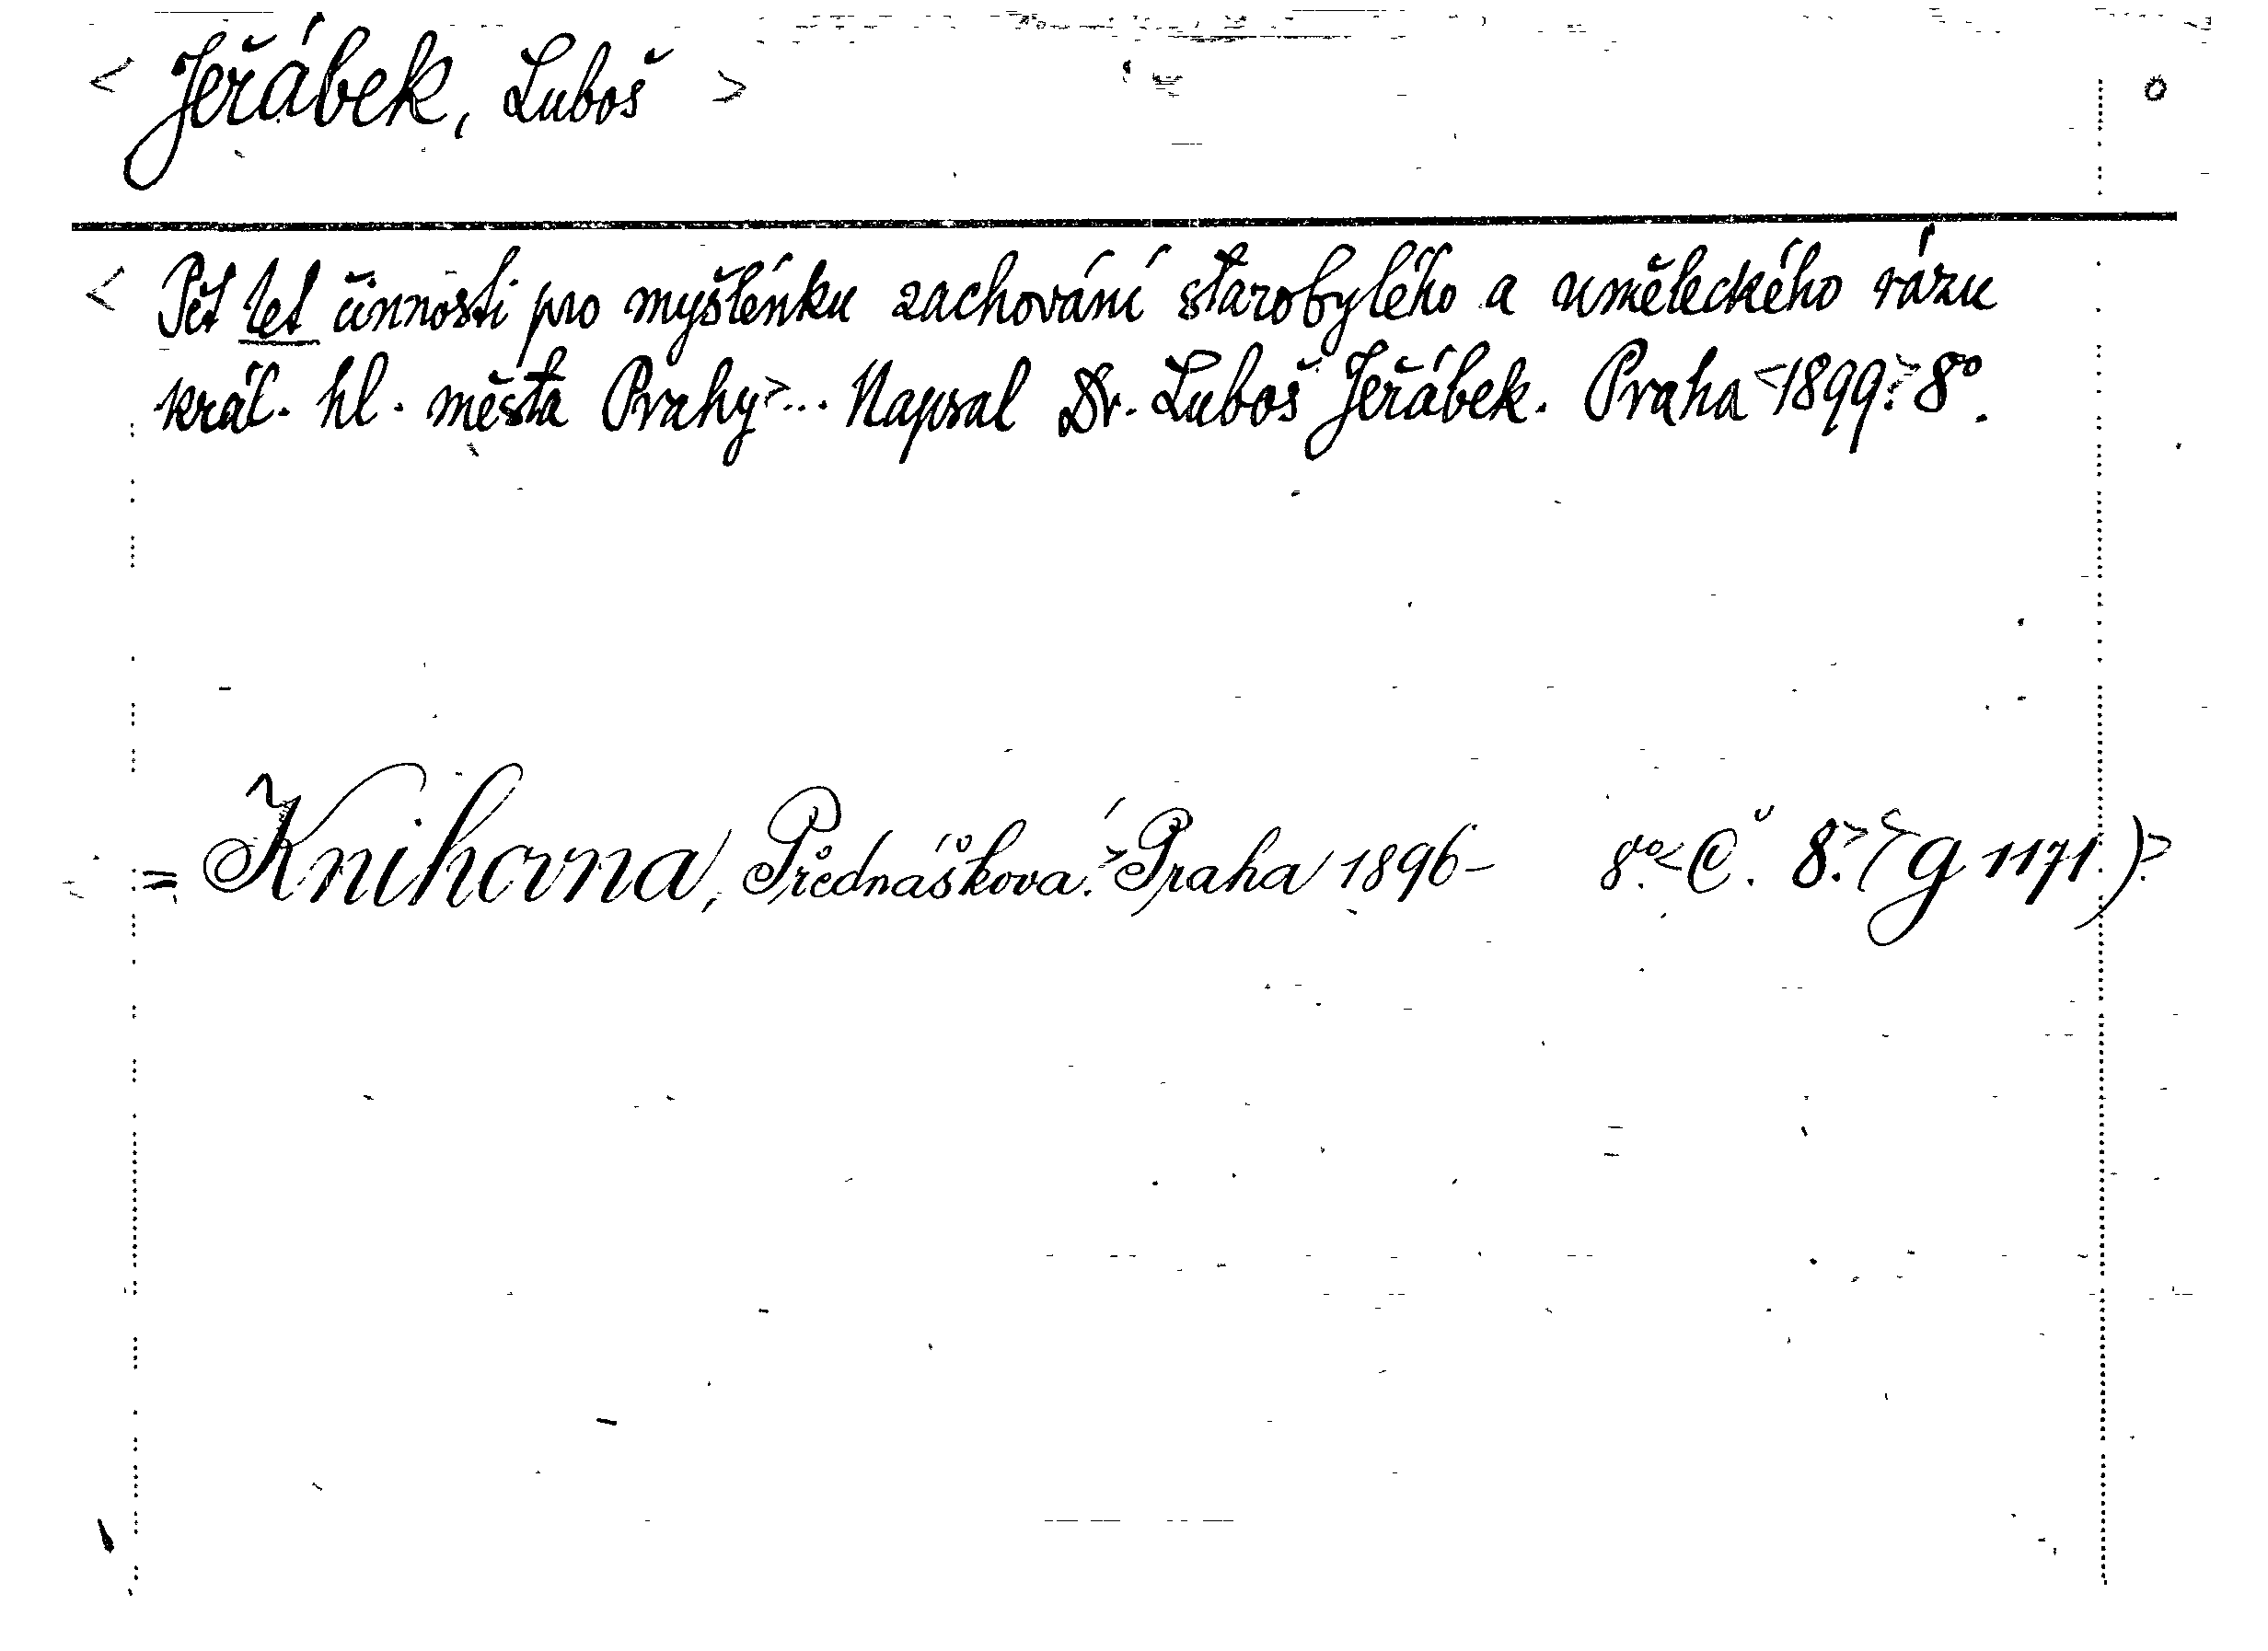 < Jeřábek, Luboš > o
< Pět let činnosti pro myšlénku zachování starobylého a uměleckého rázu
král. hl. města Prahy>... Napsal Dr. Luboš Jeřábek. Praha <1899>. 8°.
= Knihovna, Přednášková.> Praha 1896- 8°.< Č. 8.> <(g 1171.)>